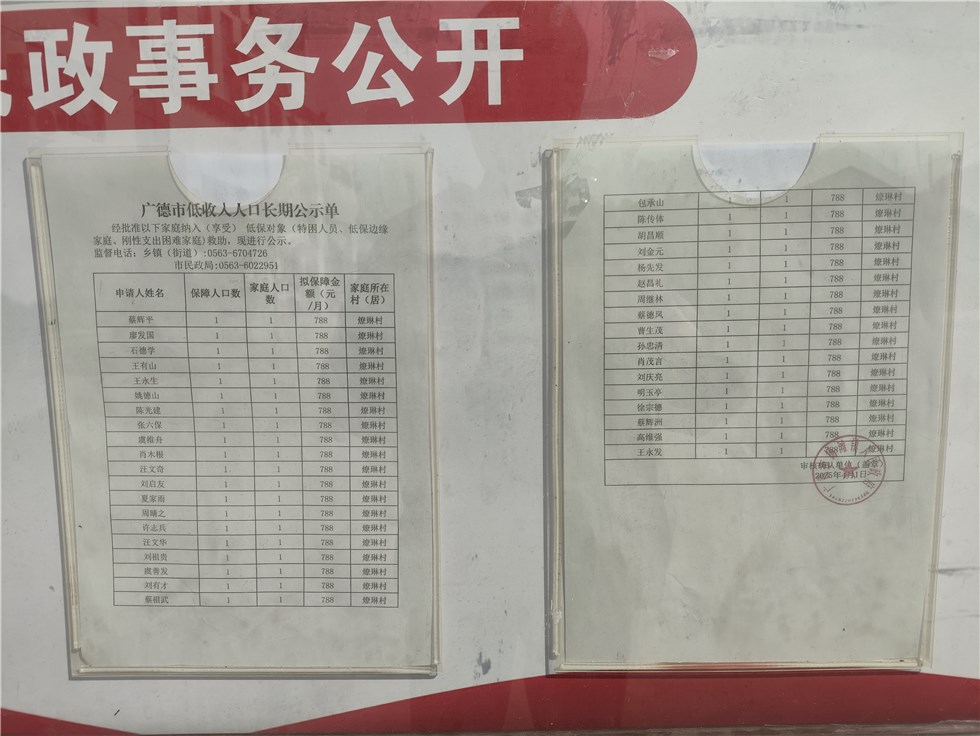 政事务公开
广德市低收入人口长期公示单
经批准以下家庭纳入（享受） 低保对象（特困人员、低保边缘
家庭、刚性支出困难家庭)救助，现进行公示。
监督电话：乡镇（街道）:0563-6704726
市民政局:0563-6022951
申请人姓名 保障人口数 家庭人口数 拟保障金额（元/月） 家庭所在村（居）
蔡辉平 1 1 788 燎琳村
廖发国 1 1 788 燎琳村
石德学 1 1 788 燎琳村
王有山 1 1 788 燎琳村
王永生 1 1 788 燎琳村
姚德山 1 1 788 燎琳村
陈光建 1 1 788 燎琳村
张六保 1 1 788 燎琳村
虞维舟 1 1 788 燎琳村
肖木根 1 1 788 燎琳村
汪文奇 1 1 788 燎琳村
刘启友 1 1 788 燎琳村
夏家雨 1 1 788 燎琳村
周曦之 1 1 788 燎琳村
许志兵 1 1 788 燎琳村
汪文华 1 1 788 燎琳村
刘祖贵 1 1 788 燎琳村
虞善发 1 1 788 燎琳村
刘有才 1 1 788 燎琳村
蔡祖武 1 1 788 燎琳村
包承山 1 1 788 燎琳村
陈传体 1 1 788 燎琳村
胡昌顺 1 1 788 燎琳村
刘金元 1 1 788 燎琳村
杨先发 1 1 788 燎琳村
赵昌礼 1 1 788 燎琳村
周继林 1 1 788 燎琳村
蔡德凤 1 1 788 燎琳村
曹生茂 1 1 788 燎琳村
孙忠清 1 1 788 燎琳村
肖茂言 1 1 788 燎琳村
刘庆亮 1 1 788 燎琳村
明玉亭 1 1 788 燎琳村
徐宗德 1 1 788 燎琳村
蔡辉洲 1 1 788 燎琳村
高维强 1 1 788 燎琳村
王永发 1 1 788 燎琳村
审核确认单位（盖章）